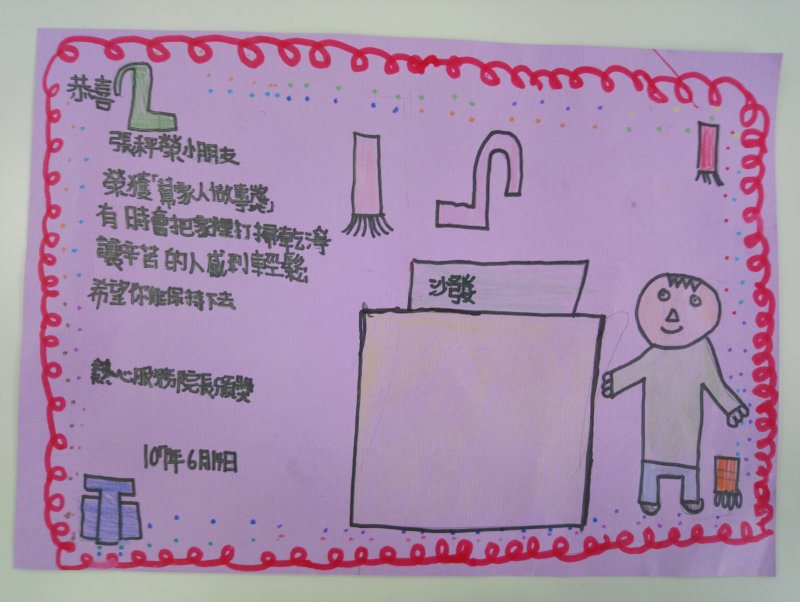 恭喜
張秤榮小朋友
榮獲「幫家人做事獎」
有時會把家裡打掃乾淨
讓辛苦的人感到輕鬆
希望你能保持下去
熱心服務院長頒獎
107年6月14日
沙發